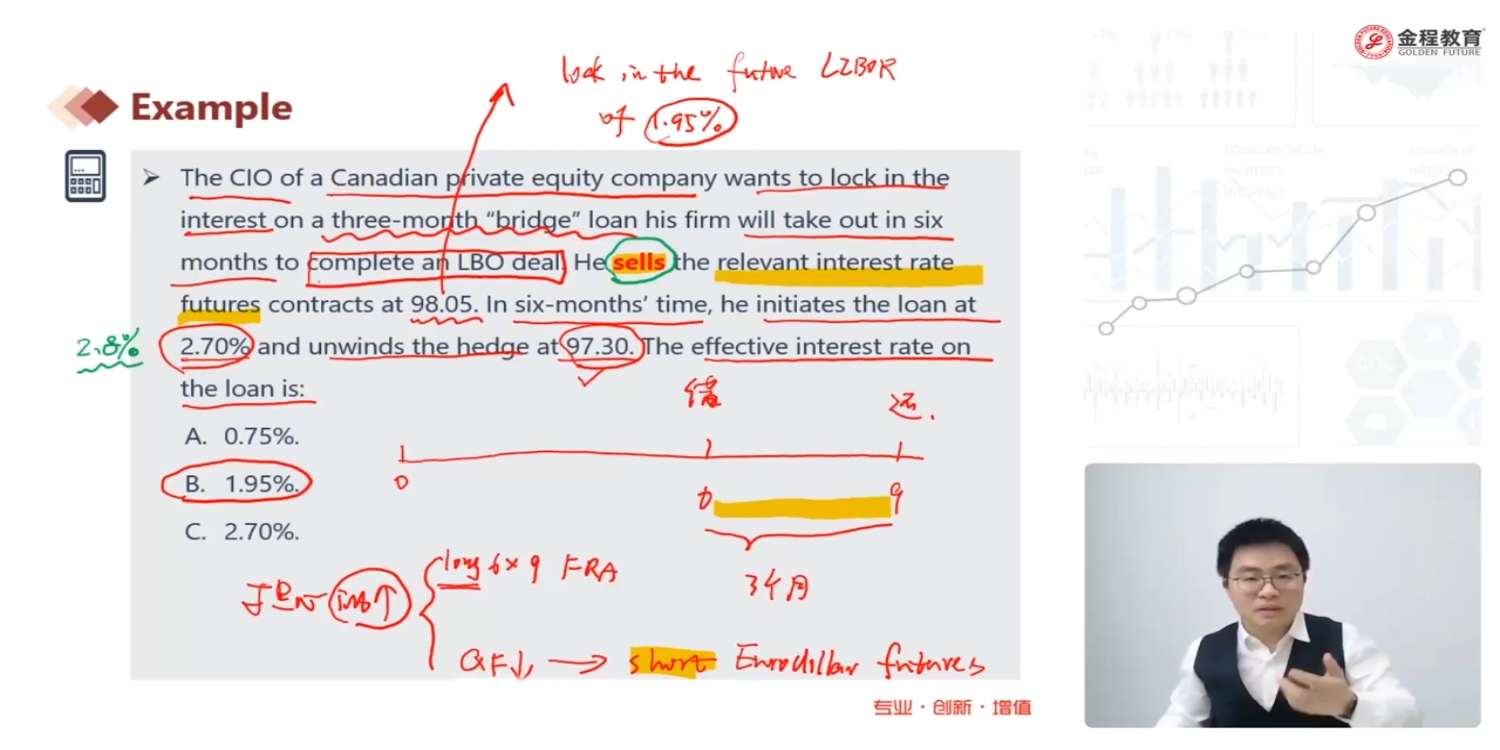 金程教育
GOLDEN FUTURE
lock in the future LIBOR
of 1.95%
Example
The CIO of a Canadian private equity company wants to lock in the
interest on a three-month “bridge” loan his firm will take out in six
months to complete an LBO deal. He sells the relevant interest rate
futures contracts at 98.05. In six-months’ time, he initiates the loan at
2.8%
2.70% and unwinds the hedge at 97.30. The effective interest rate on
the loan is:
借
还.
A. 0.75%.
B. 1.95%.
C. 2.70%.
0
6
9
3个月
担心 int↑
long 6×9 FRA
QF↓ → short Eurodollar futures
专业·创新·增值